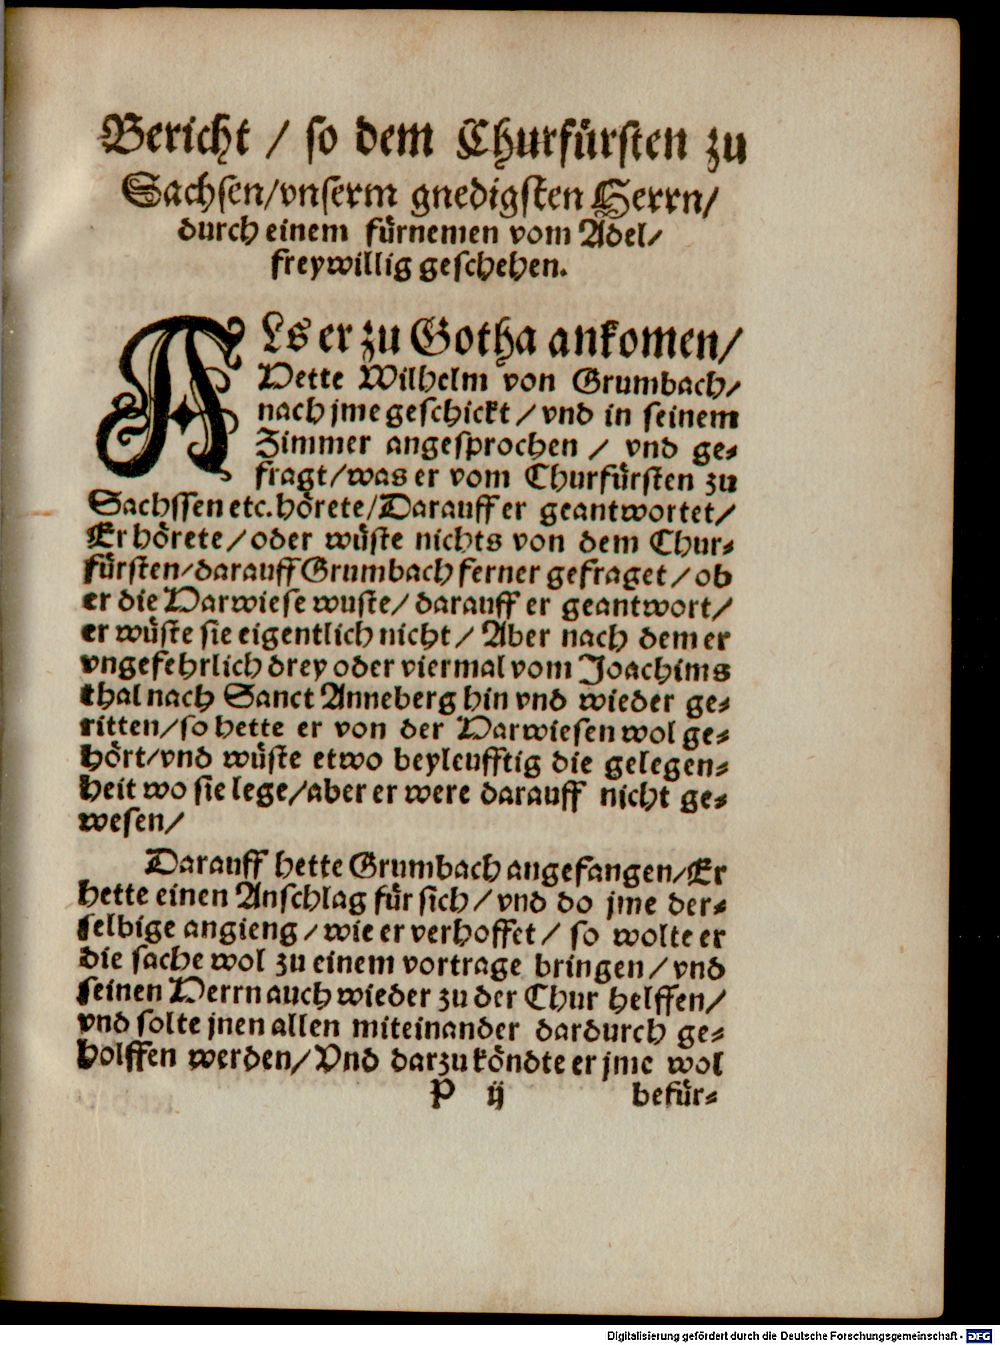 Bericht / so dem Churfürsten zu
Sachsen/vnserm gnedigsten Herrn/
durch einem fürnemen vom Adel/
freywillig geschehen.
ALs er zu Gotha ankomen/
Hette Wilhelm von Grumbach/
nach jme geschickt / vnd in seinem
Zimmer angesprochen / vnd ge-
fragt/was er vom Churfürsten zu
Sachssen etc. hörete/Darauff er geantwortet/
Er hörete/oder wüste nichts von dem Chur-
fürsten/darauff Grumbach ferner gefraget/ob
er die Harwiese wuste/darauff er geantwort/
er wüste sie eigentlich nicht/Aber nach dem er
vngefehrlich drey oder viermal vom Joachims
thal nach Sanct Anneberg hin vnd wieder ge-
ritten/so hette er von der Harwiesen wol ge-
hört/vnd wüste etwo beyleufftig die gelegen-
heit wo sie lege/aber er were darauff nicht ge-
wesen/
Darauff hette Grumbach angefangen/Er
hette einen Anschlag für sich/vnd do jme der-
selbige angieng/wie er verhoffet/so wolte er
die sache wol zu einem vortrage bringen/vnd
seinen Herrn auch wieder zu der Chur helffen/
vnd solte jnen allen miteinander dardurch ge-
holffen werden/Vnd darzu köndte er jme wol
P ij befür-
Digitalisierung gefördert durch die Deutsche Forschungsgemeinschaft - DFG